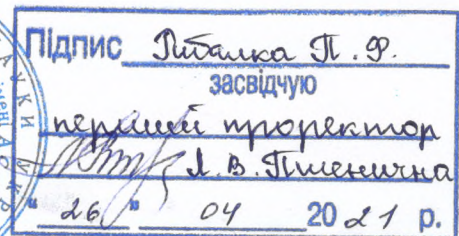 Підпис Рибалка П. Ф.
засвідчую
перший проректор
Л. В. Пшенична
"26" 04 2021 р.
АУКИ УКР
імені А